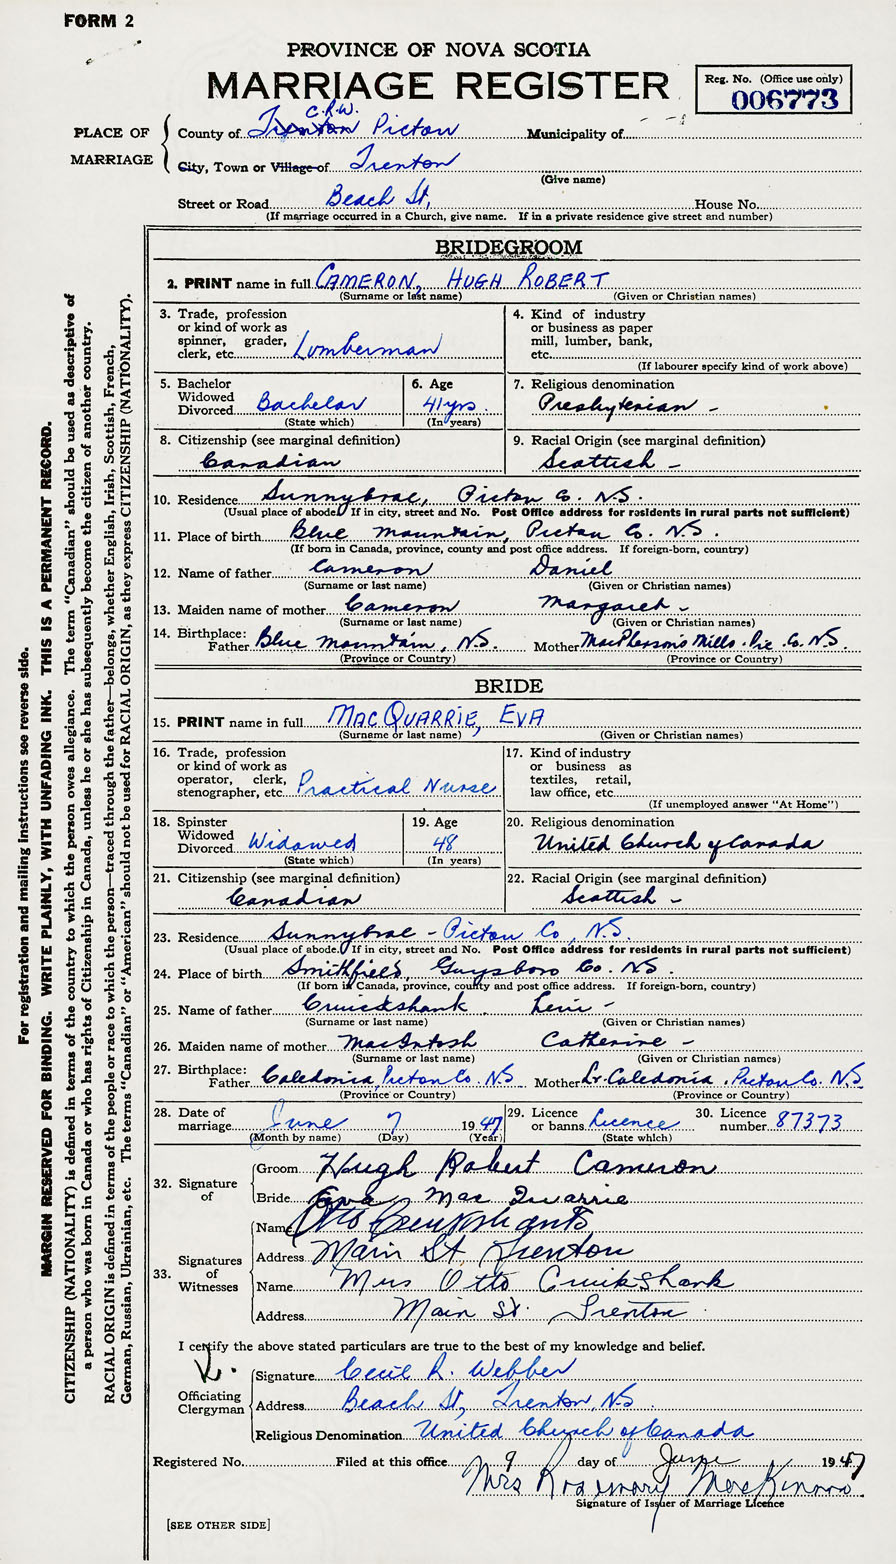 FORM 2
PROVINCE OF NOVA SCOTIA
MARRIAGE REGISTER
Reg. No. (Office use only)
006773
PLACE OF MARRIAGE
C.R.W.
County of Trenton Pictou Municipality of
City, Town or Village of Trenton
(Give name)
Street or Road Beach St, House No.
(If marriage occurred in a Church, give name. If in a private residence give street and number)
BRIDEGROOM
2. PRINT name in full CAMERON, HUGH ROBERT
(Surname or last name) (Given or Christian names)
3. Trade, profession
or kind of work as
spinner, grader,
clerk, etc. Lumberman
4. Kind of industry
or business as paper
mill, lumber, bank,
etc.
(If labourer specify kind of work above)
5. Bachelor
Widowed
Divorced Bachelor
(State which)
6. Age
41 yrs.
(In years)
7. Religious denomination
Presbyterian -
8. Citizenship (see marginal definition)
Canadian
9. Racial Origin (see marginal definition)
Scottish -
10. Residence Sunnybrae, Pictou Co. N.S.
(Usual place of abode. If in city, street and No. Post Office address for residents in rural parts not sufficient)
11. Place of birth Blue Mountain, Pictou Co. N.S.
(If born in Canada, province, county and post office address. If foreign-born, country)
12. Name of father Cameron Daniel
(Surname or last name) (Given or Christian names)
13. Maiden name of mother Cameron Margaret -
(Surname or last name) (Given or Christian names)
14. Birthplace:
Father Blue Mountain, N.S. Mother MacPherson's Mills. Pic. Co. N.S.
(Province or Country) (Province or Country)
BRIDE
15. PRINT name in full MACQUARRIE, EVA
(Surname or last name) (Given or Christian names)
16. Trade, profession
or kind of work as
operator, clerk,
stenographer, etc. Practical Nurse
17. Kind of industry
or business as
textiles, retail,
law office, etc.
(If unemployed answer "At Home")
18. Spinster
Widowed
Divorced Widowed
(State which)
19. Age
48
(In years)
20. Religious denomination
United Church of Canada
21. Citizenship (see marginal definition)
Canadian
22. Racial Origin (see marginal definition)
Scottish -
23. Residence Sunnybrae - Pictou Co, N.S.
(Usual place of abode. If in city, street and No. Post Office address for residents in rural parts not sufficient)
24. Place of birth Smithfield, Guysboro Co. N.S.
(If born in Canada, province, county and post office address. If foreign-born, country)
25. Name of father Cruickshank Levi -
(Surname or last name) (Given or Christian names)
26. Maiden name of mother MacIntosh Catherine -
(Surname or last name) (Given or Christian names)
27. Birthplace:
Father Caledonia, Pictou Co. N.S Mother Lr. Caledonia, Pictou Co. N.S
(Province or Country) (Province or Country)
28. Date of
marriage June 7 1947
(Month by name) (Day) (Year)
29. Licence
or banns Licence
(State which)
30. Licence
number 87373
32. Signature of
Groom Hugh Robert Cameron
Bride Eva Mac Quarrie
33. Signatures of Witnesses
Name Otto
Address Main St, Trenton
Name Mrs Otto Cruikshank
Address Main St. Trenton
I certify the above stated particulars are true to the best of my knowledge and belief.
Officiating Clergyman
Signature Cecil R. Webber
Address Beach St, Trenton, N.S.
Religious Denomination United Church of Canada
Registered No. Filed at this office 9 day of June 1947
Mrs Rosemary MacKinnon
Signature of Issuer of Marriage Licence
[SEE OTHER SIDE]
For registration and mailing instructions see reverse side.
MARGIN RESERVED FOR BINDING. WRITE PLAINLY, WITH UNFADING INK. THIS IS A PERMANENT RECORD.
CITIZENSHIP (NATIONALITY) is defined in terms of the country to which the person owes allegiance. The term "Canadian" should be used as descriptive of
a person who was born in Canada or who has rights of Citizenship in Canada, unless he or she has subsequently become the citizen of another country.
RACIAL ORIGIN is defined in terms of the people or race to which the person—traced through the father—belongs, whether English, Irish, Scottish, French,
German, Russian, Ukrainian, etc. The terms "Canadian" or "American" should not be used for RACIAL ORIGIN, as they express CITIZENSHIP (NATIONALITY).